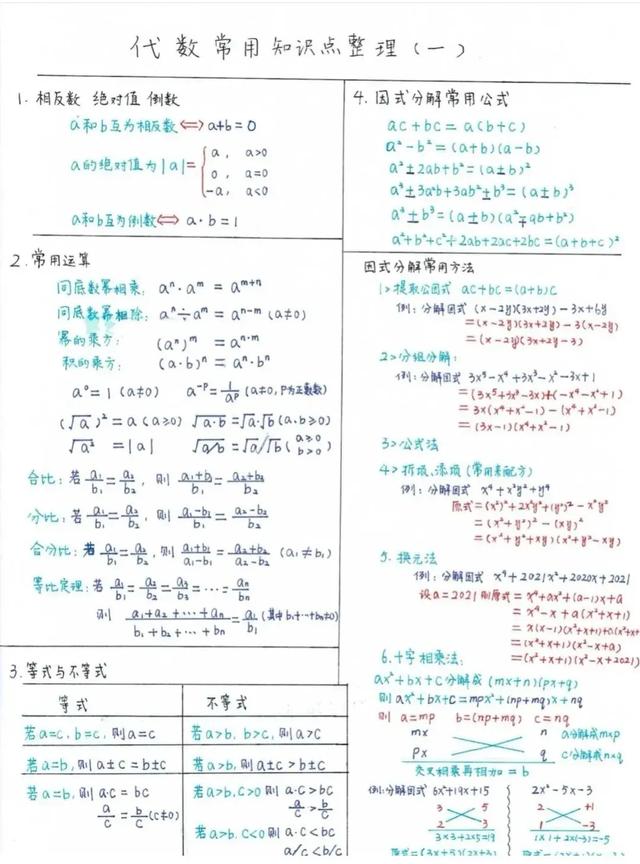 代数常用知识点整理(一)
1. 相反数 绝对值 倒数
a和b互为相反数⟺a+b=0
a的绝对值为|a|={a, a>0
0, a=0
-a, a<0
a和b互为倒数⟺a·b=1
2. 常用运算
同底数幂相乘: aⁿ·aᵐ=aᵐ⁺ⁿ
同底数幂相除: aⁿ÷aᵐ=aⁿ⁻ᵐ (a≠0)
幂的乘方: (aⁿ)ᵐ=aⁿ·ᵐ
积的乘方: (a·b)ⁿ=aⁿ·bⁿ
a⁰=1 (a≠0) a⁻ᵖ=1/aᵖ (a≠0, P为正数数)
(√a)²=a (a≥0) √a·b=√a·√b (a.b≥0)
√a²=|a| √a/b=√a/√b (a≥0 b>0)
合比: 若 a₁/b₁=a₂/b₂, 则 (a₁+b₁)/b₁=(a₂+b₂)/b₂
分比: 若 a₁/b₁=a₂/b₂, 则 (a₁-b₁)/b₁=(a₂-b₂)/b₂
合分比: 若 a₁/b₁=a₂/b₂, 则 (a₁+b₁)/(a₁-b₁)=(a₂+b₂)/(a₂-b₂) (a₁≠b₁)
等比定理: 若 a₁/b₁=a₂/b₂=a₃/b₃=…=aₙ/bₙ
则 (a₁+a₂+…+aₙ)/(b₁+b₂+…+bₙ)=a₁/b₁ (其中b₁+…+bₙ≠0)
3. 等式与不等式
等式 不等式
若a=c, b=c, 则a=c 若a>b, b>c, 则a>c
若a=b, 则a±c=b±c 若a>b, 则a±c>b±c
若a=b, 则a·c=bc 若a>b, c>0 则a·c>bc
a/c=b/c (c≠0) a/c>b/c
若a>b, c<0 则a·c<bc
a/c<b/c
4. 因式分解常用公式
ac+bc=a(b+c)
a²-b²=(a+b)(a-b)
a²±2ab+b²=(a±b)²
a³±3a²b+3ab²±b³=(a±b)³
a³±b³=(a±b)(a²∓ab+b²)
a²+b²+c²+2ab+2ac+2bc=(a+b+c)²
因式分解常用方法
1> 提取公因式 ac+bc=(a+b)c
例: 分解因式 (x-2y)(3x+2y)-3x+6y
=(x-2y)(3x+2y)-3(x-2y)
=(x-2y)(3x+2y-3)
2> 分组分解:
例: 分解因式 3x⁵-x⁴+3x³-x²-3x+1
=(3x⁵+3x³-3x)+(-x⁴-x²+1)
=3x(x⁴+x²-1)-(x⁴+x²-1)
=(3x-1)(x⁴+x²-1)
3> 公式法
4> 拆项、添项 (常用来配方)
例: 分解因式 x⁴+x²y²+y⁴
原式=(x²)²+2x²y²+(y²)²-x²y²
=(x²+y²)²-(xy)²
=(x²+y²+xy)(x²+y²-xy)
5. 换元法
例: 分解因式 x⁴+2021x²+2020x+2021
设a=2021则原式=x⁴+ax²+(a-1)x+a
=x⁴-x+a(x²+x+1)
=x(x-1)(x²+x+1)+a(x²+x+
=(x²+x+1)(x²-x+a)
=(x²+x+1)(x²-x+2021)
6. 十字相乘法:
ax²+bx+c分解成 (mx+n)(px+q)
则 ax²+bx+c=mpx²+(np+mq)x+nq
则 a=mp b=(np+mq) c=nq
mx n a分解成m×p
px q c分解成n×q
交叉相乘再相加=b
例: 分解因式 6x²+19x+15 2x²-5x-3
3 5 2 +1
2 3 1 -3
3×3+2×5=19 1×1+2×(-3)=-5
原式=(3x+5)(2x+3)